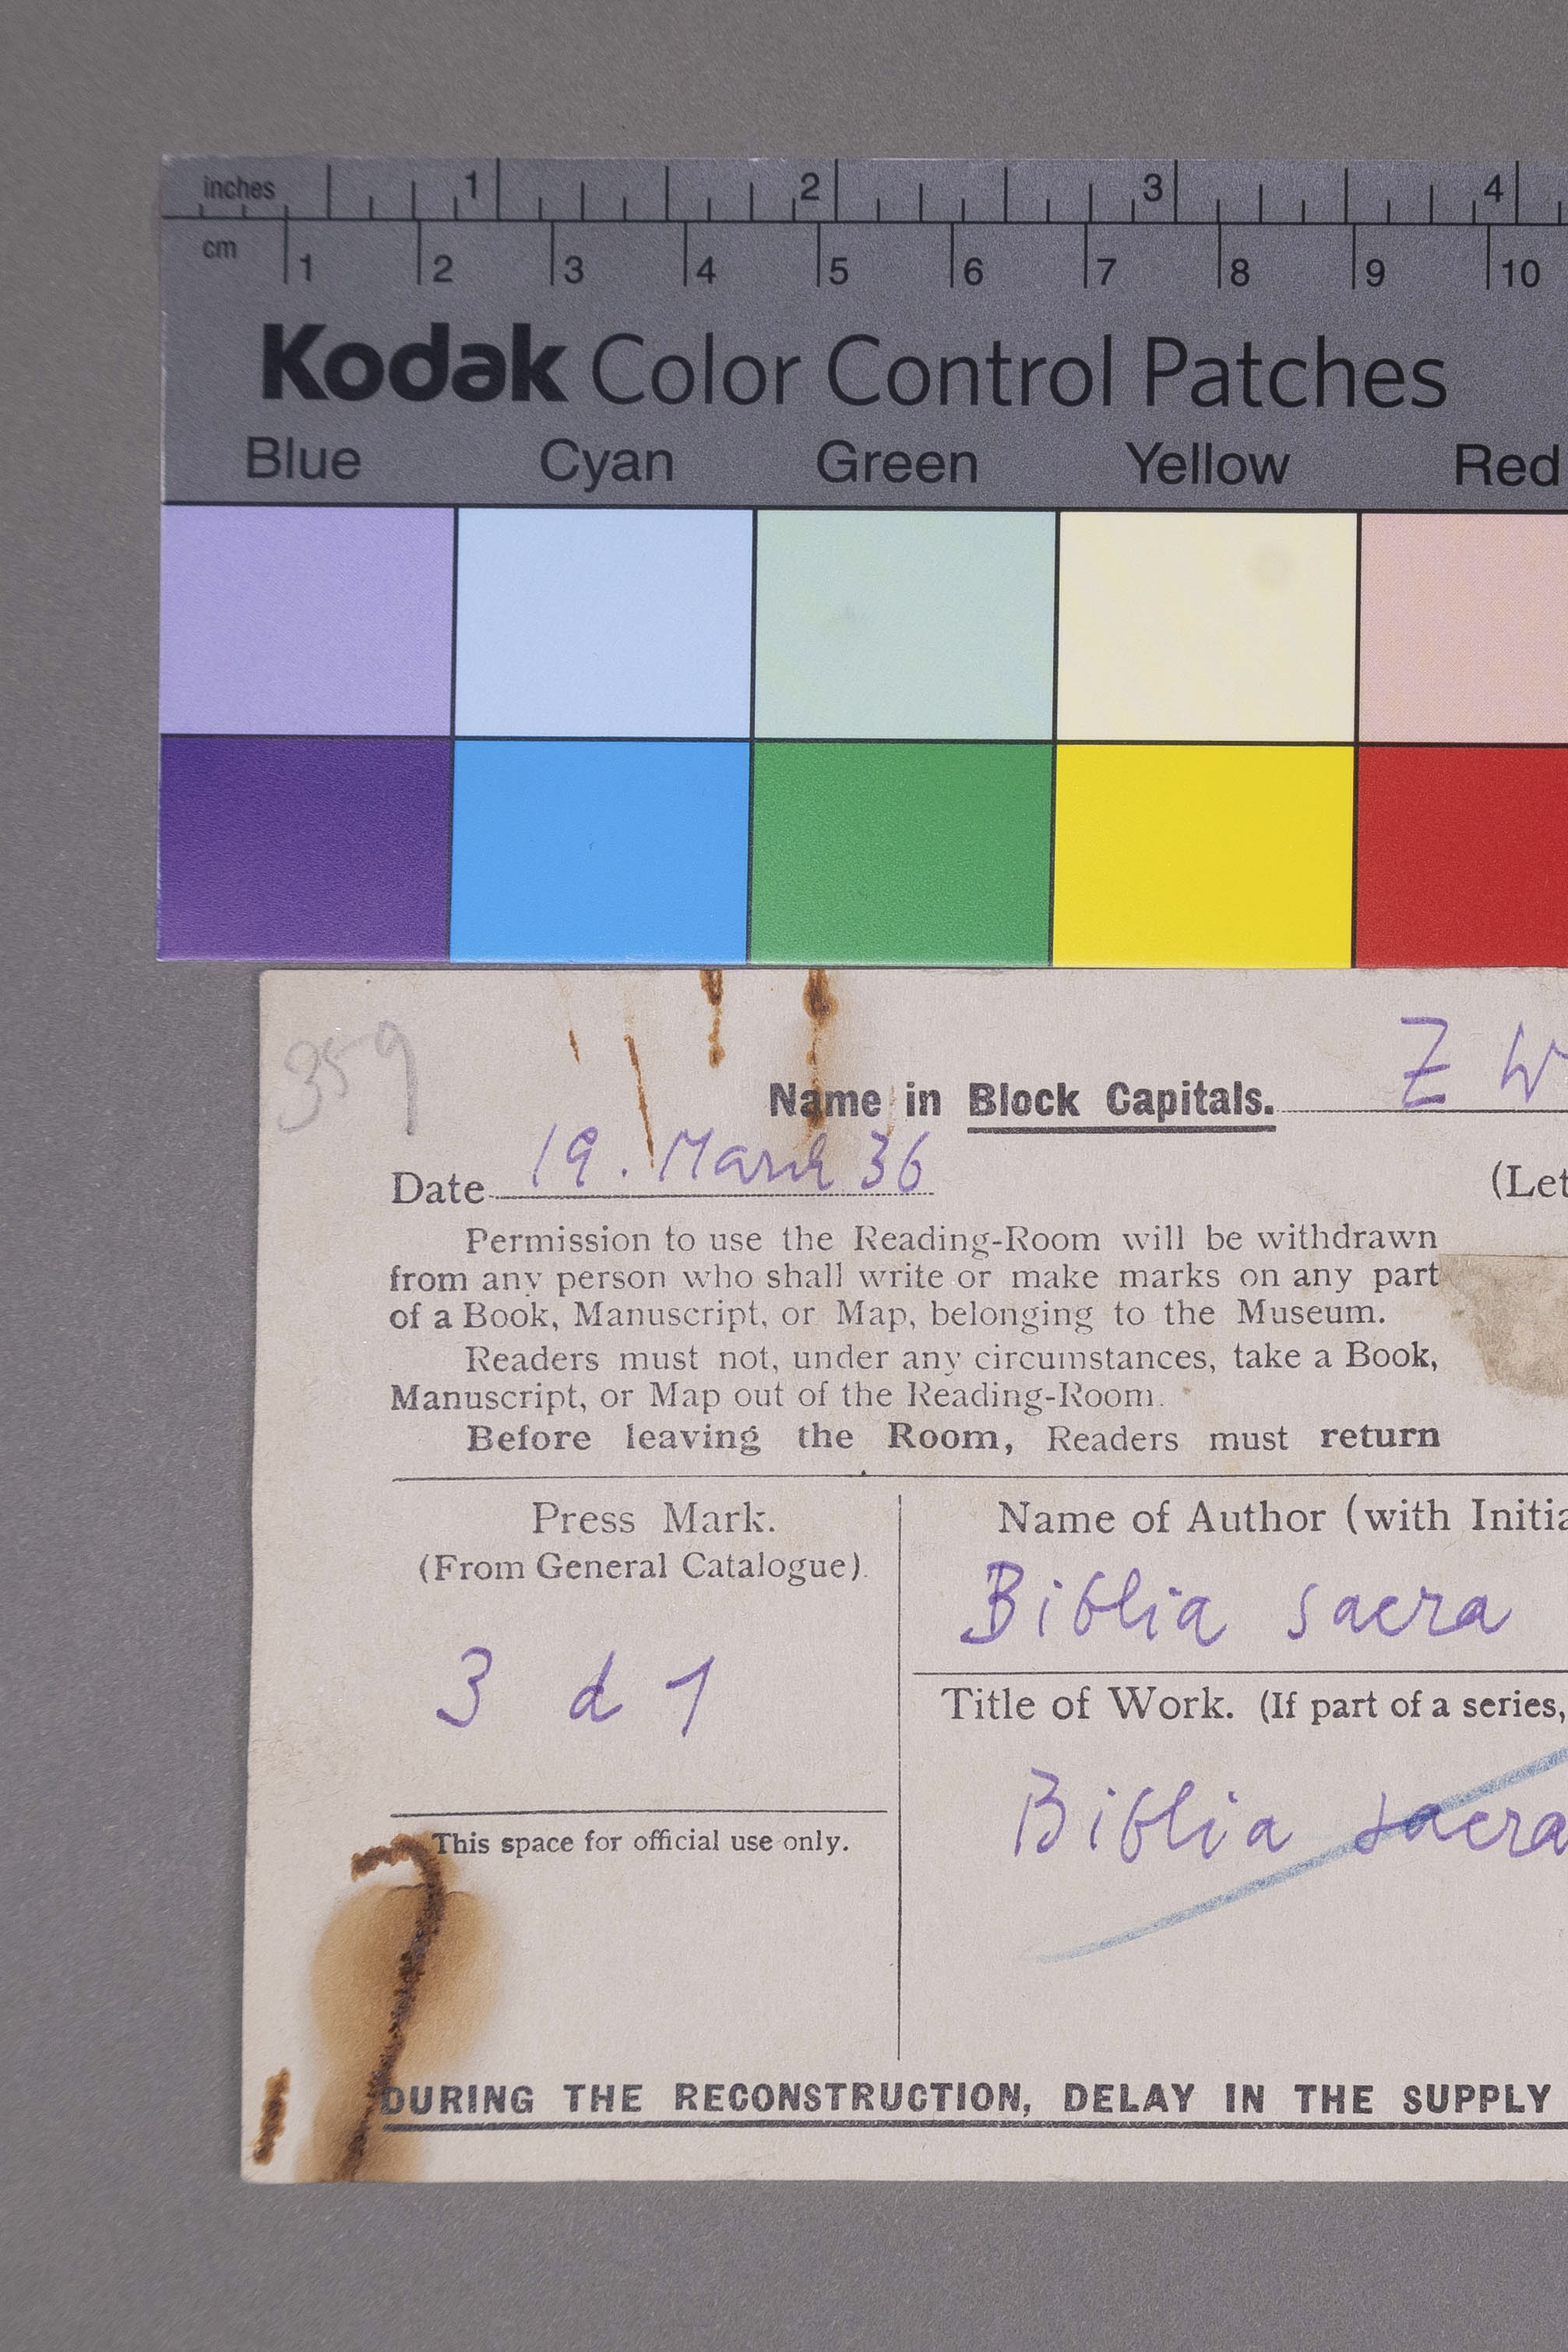 inches 1 2 3 4
cm 1 2 3 4 5 6 7 8 9 10
Kodak Color Control Patches
Blue Cyan Green Yellow Red
359
Name in Block Capitals. Z W
Date 19. March 36
(Let
Permission to use the Reading-Room will be withdrawn
from any person who shall write or make marks on any part
of a Book, Manuscript, or Map, belonging to the Museum.
Readers must not, under any circumstances, take a Book,
Manuscript, or Map out of the Reading-Room.
Before leaving the Room, Readers must return
Press Mark.
(From General Catalogue).
3 d 1
This space for official use only.
Name of Author (with Initia
Biblia sacra
Title of Work. (If part of a series,
Biblia sacra
DURING THE RECONSTRUCTION, DELAY IN THE SUPPLY